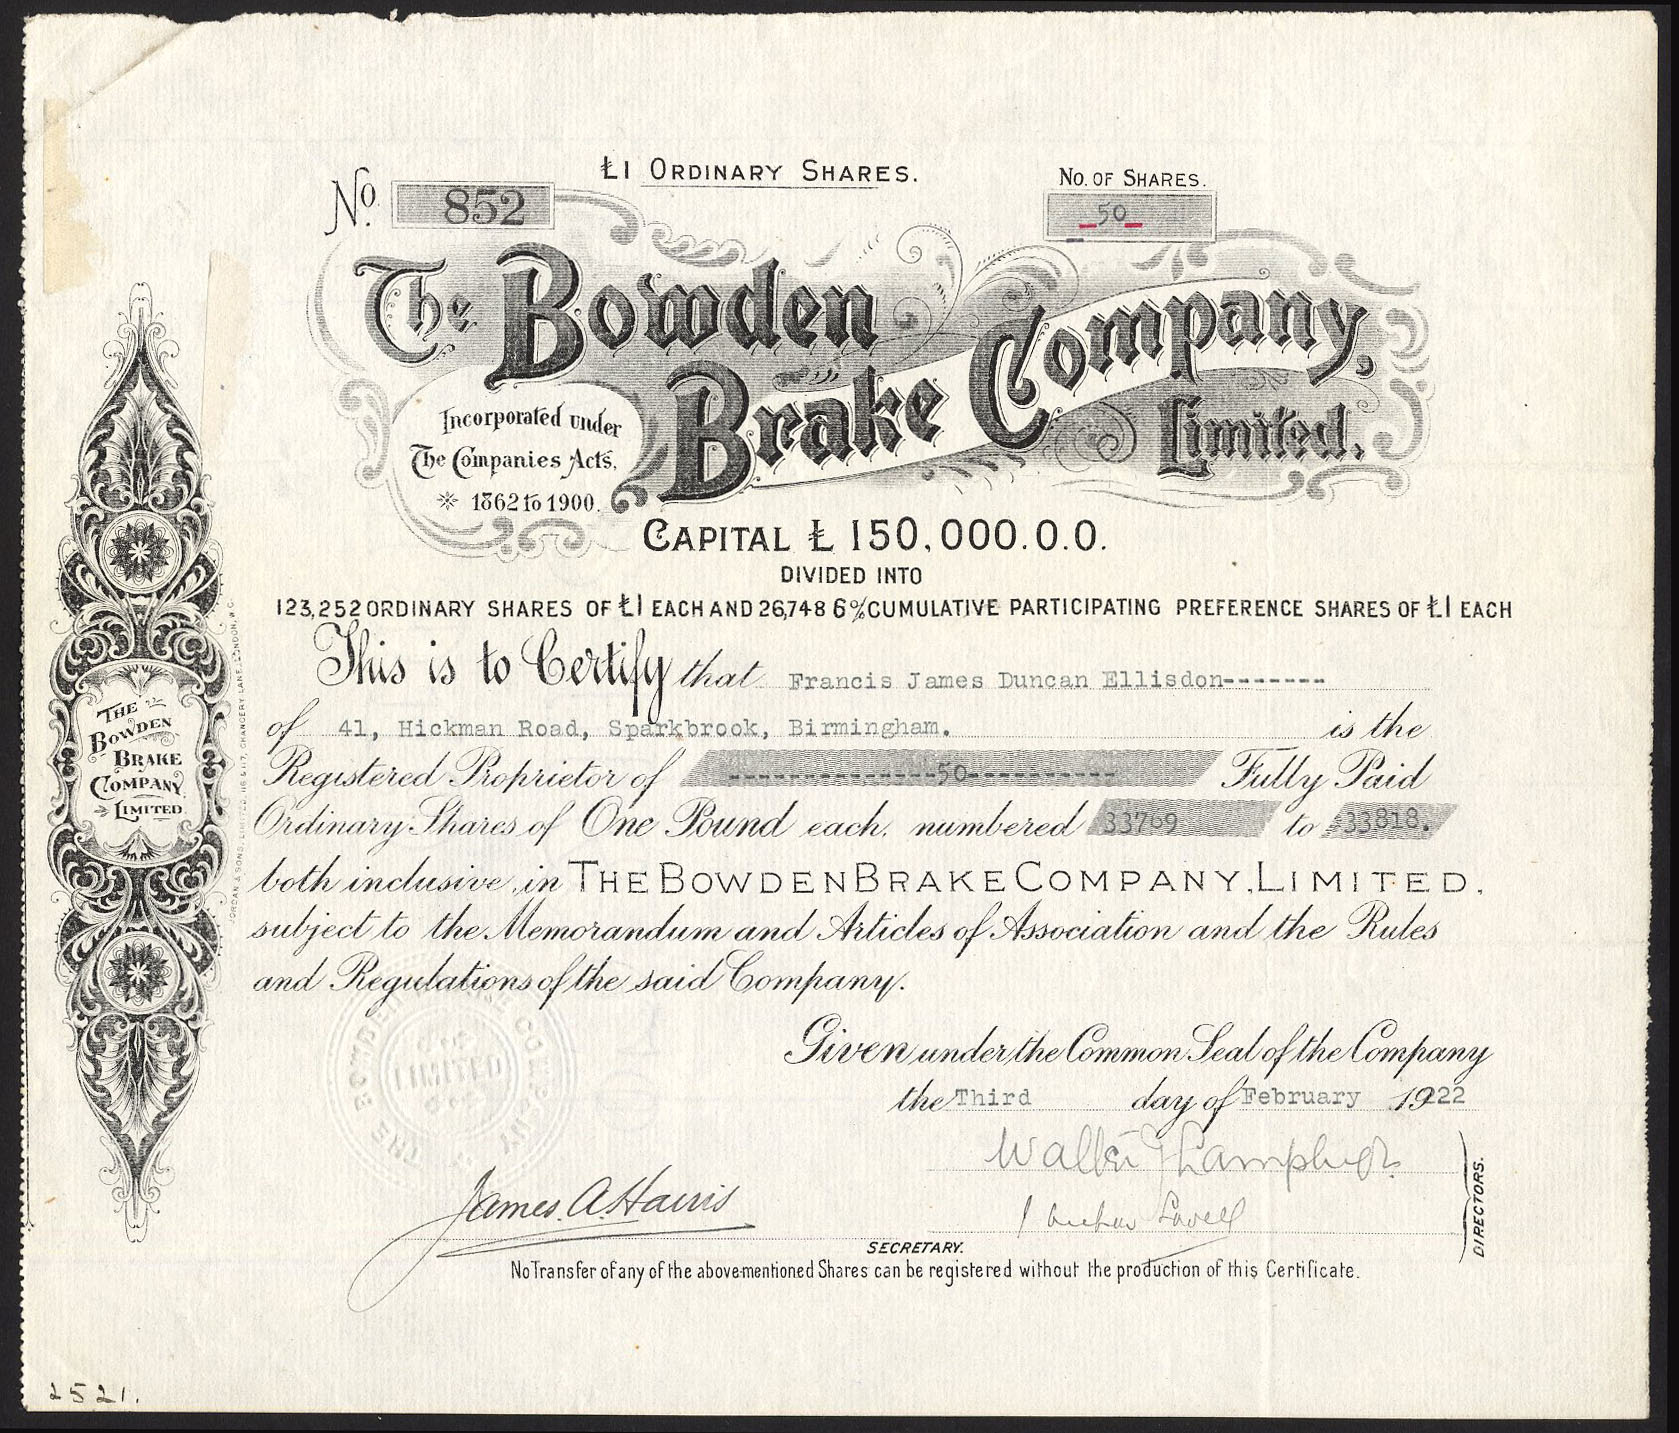 £1 ORDINARY SHARES.
No. 852
No. OF SHARES.
50
The Bowden
Brake Company,
Limited.
Incorporated under
The Companies Acts,
1862 to 1900.
CAPITAL £150,000.0.0.
DIVIDED INTO
123,252 ORDINARY SHARES OF £1 EACH AND 26,748 6% CUMULATIVE PARTICIPATING PREFERENCE SHARES OF £1 EACH
This is to Certify that Francis James Duncan Ellisdon-------
of 41, Hickman Road, Sparkbrook, Birmingham. is the
Registered Proprietor of --------------50---------- Fully Paid
Ordinary Shares of One Pound each, numbered 33769 to 33818.
both inclusive, in THE BOWDEN BRAKE COMPANY, LIMITED,
subject to the Memorandum and Articles of Association and the Rules
and Regulations of the said Company.
Given under the Common Seal of the Company
the Third day of February 1922
James. A. Harris
Lovell
DIRECTORS.
SECRETARY.
No Transfer of any of the above-mentioned Shares can be registered without the production of this Certificate.
THE
BOWDEN
BRAKE
COMPANY
LIMITED
JORDAN & SONS, LIMITED, 116 & 117, CHANCERY LANE, LONDON, W.C.
THE BOWDEN BRAKE COMPANY
LIMITED
2521.